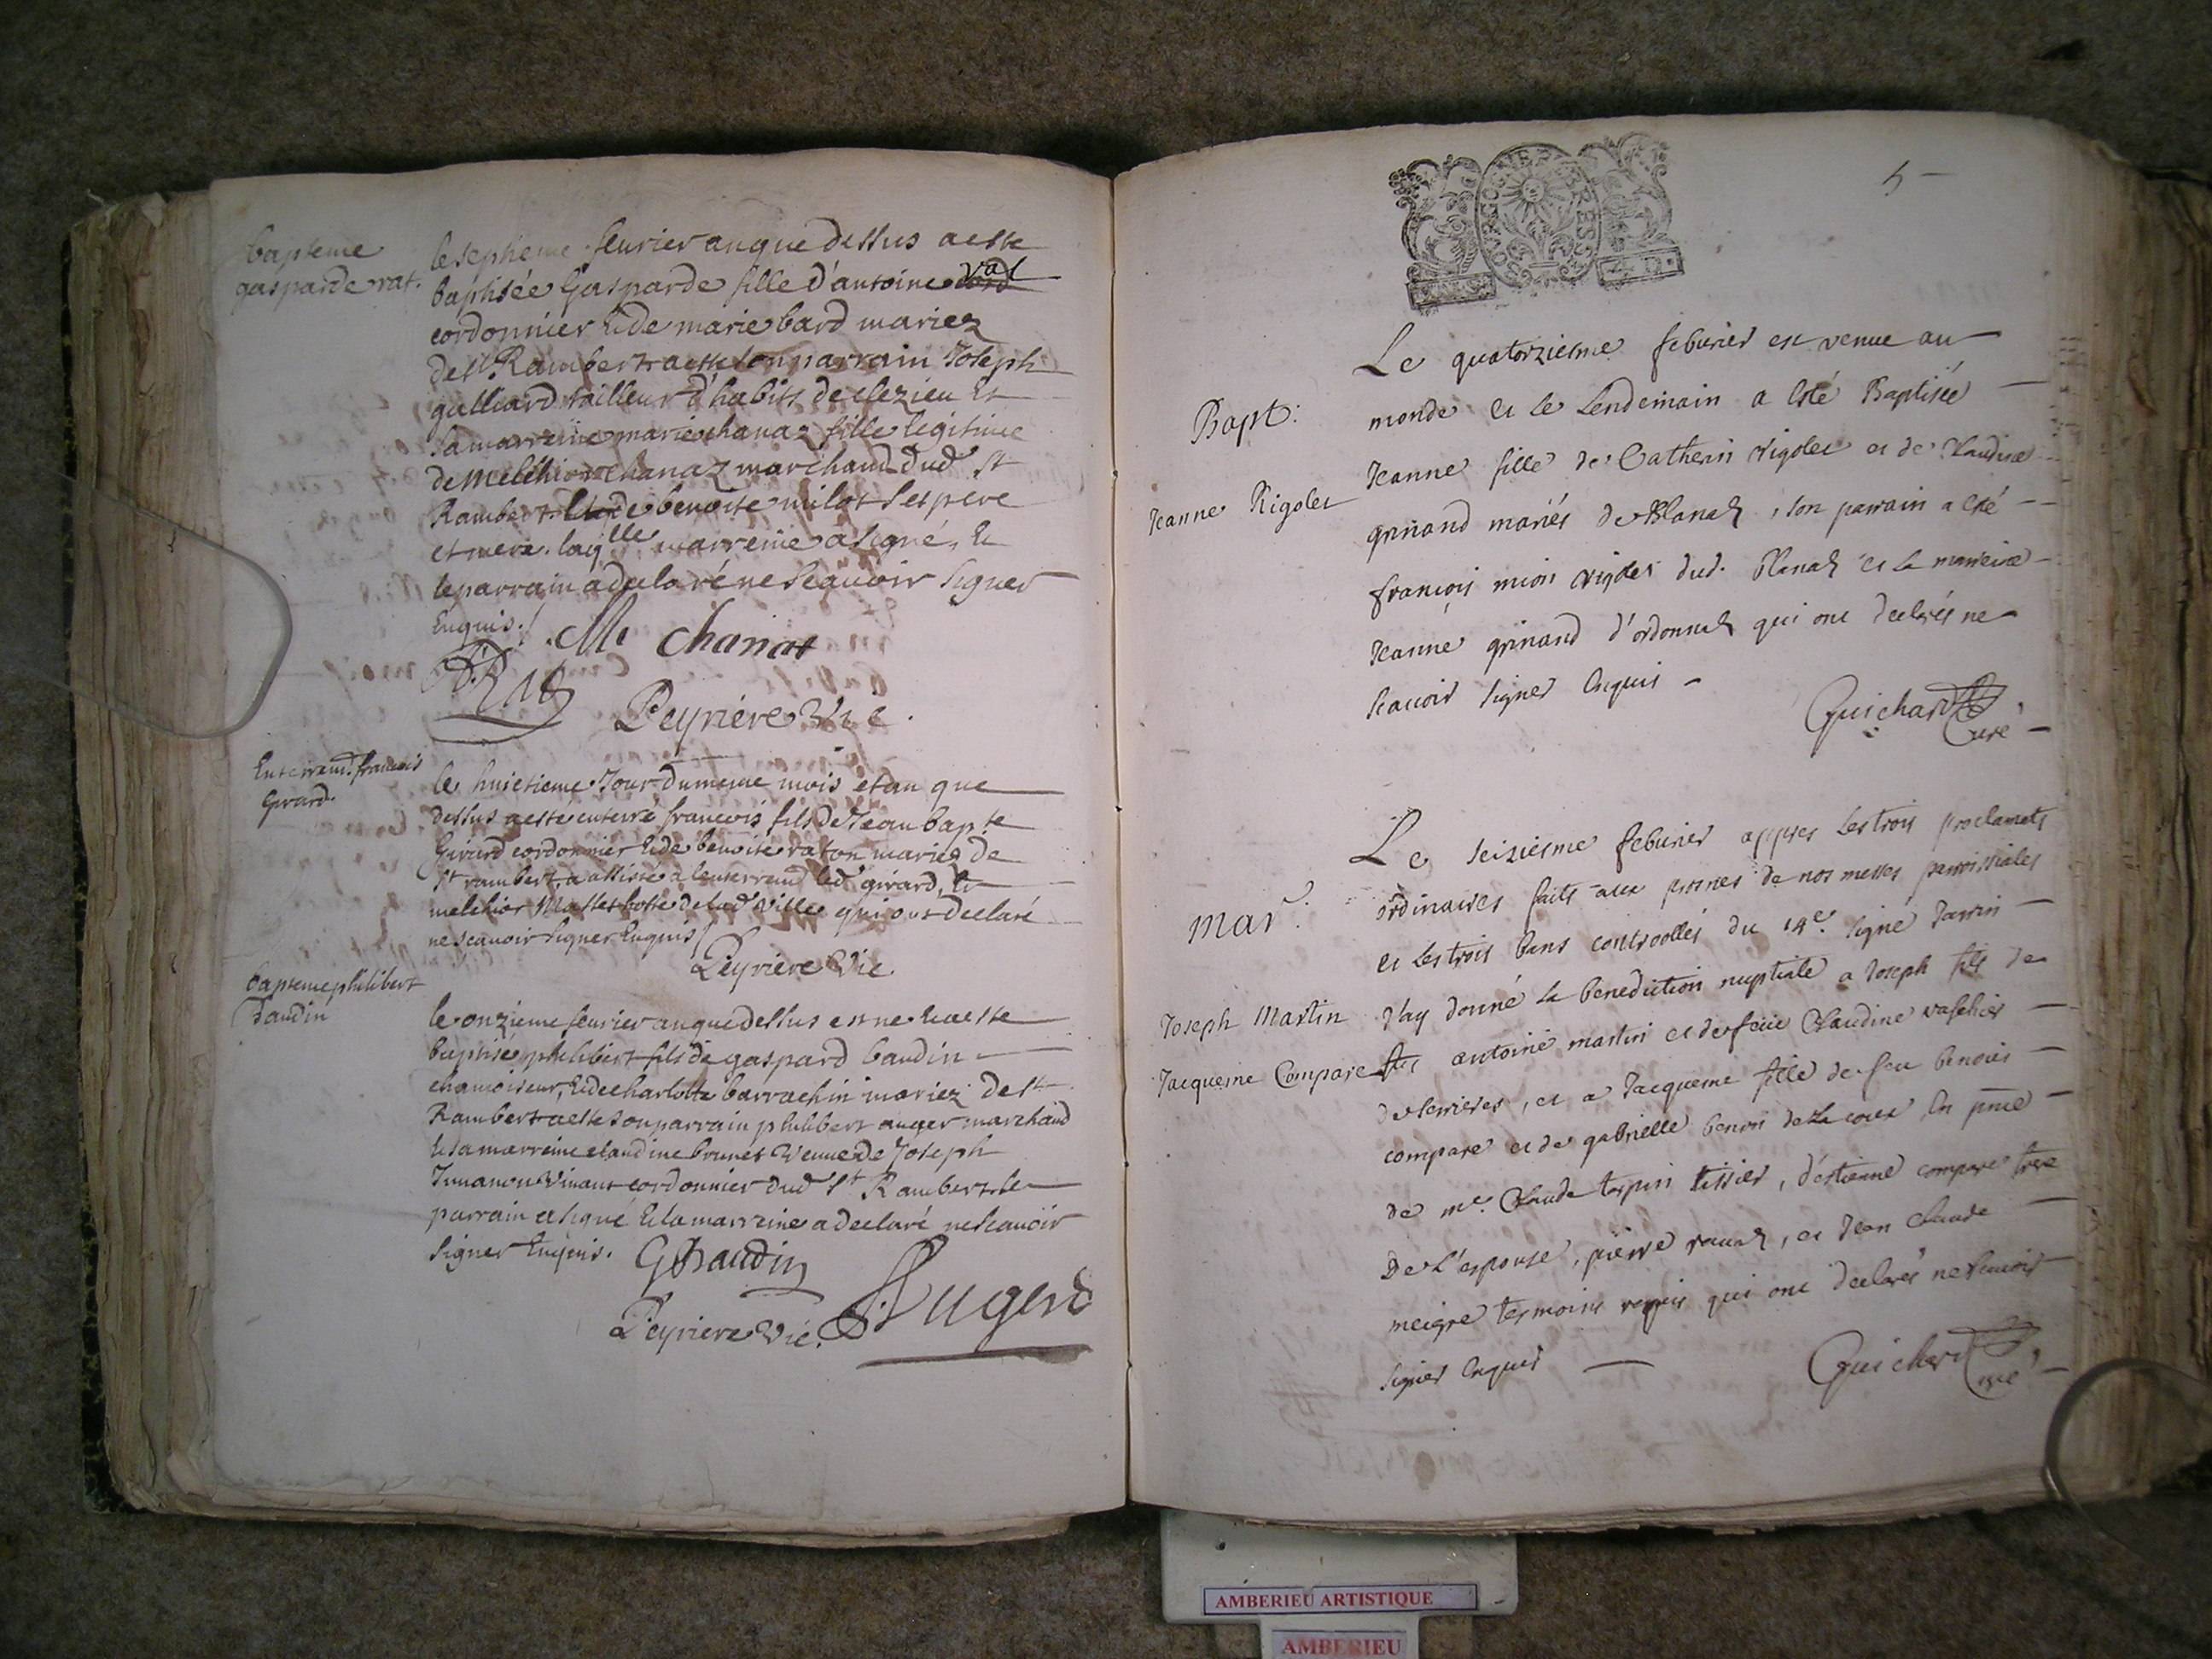 bapteme
gasparde rat.
le septieme feurier an que dessus a este
baptisée Gasparde fille d'antoine rat
cordonnier & de marie bard mariez
de st. Rambert a este son parrain Joseph
galliard tailleur d'habits de clezieu Et
sa marreine marie chanaz fille legitime
de Melchior chanaz marchand dud st
Rambert & de benoite milot ses pere
et mere. laqlle marreine a signé, Et
le parrain a declaré ne scauoir signer
Enquis./. M chanas
Rat
Peyriere Vic.
Enterremt. francois
Girard.
le huictieme Jour du meme mois et an que
dessus a esté enterré francois fils de Jean bapte
Girard cordonnier & de benoite raton mariez de
st rambert, a assisté a lenterremt led girard, Et
melchior de lad Ville qui ont declaré
ne scauoir signer Enquis /
Peyriere Vic.
bapteme philibert
baudin
le onzieme feurier an que dessus est ne & a este
baptisé philibert fils de gaspard baudin
chamoiseur, & de charlotte barrachin mariez de st
Rambert a este son parrain philibert auger marchand
& sa marreine claudine brunet Veuue de Joseph
cordonnier dud st Rambert. le
parrain a signé & la marreine a declaré ne scauoir
signer Enquis. G baudin
Peyriere Vic. Augerd
5
Bapt:
Jeanne Rigolet
Le quatorziesme feburier est venue au
monde et le Lendemain a esté Baptisée
Jeanne fille de Catherin rigolet et de Claudine
grinand mariés de Blanaz, son parrain a esté
françois mion rigolet dud. Blanaz et la marreine
Jeanne grinand d'ordonnaz qui ont declarés ne
scauoir signer Enquis
Guichard
Curé
Mar.
Joseph Martin
Jacqueme Compare
Le seiziesme feburier appres Les trois proclamats
ordinaires faits aux prosnes de nos messes parroissiales
et Les trois bans controollés du 14e. signé Jarrin
J'ay donné la benediction nuptiale a Joseph fils de
antoine martin et de feüe Claudine
de serrieres, et a Jacqueme fille de feu benoist
compare et de gabrielle benon de La coux En pnce
de me. Claude tissier, d'estienne compare frere
De L'espouse, pierre rauaz, et Jean claude
meigre tesmoins requis qui ont declarés ne scauoir
signer Enquis
Guichard
Curé
AMBERIEU ARTISTIQUE
AMBERIEU